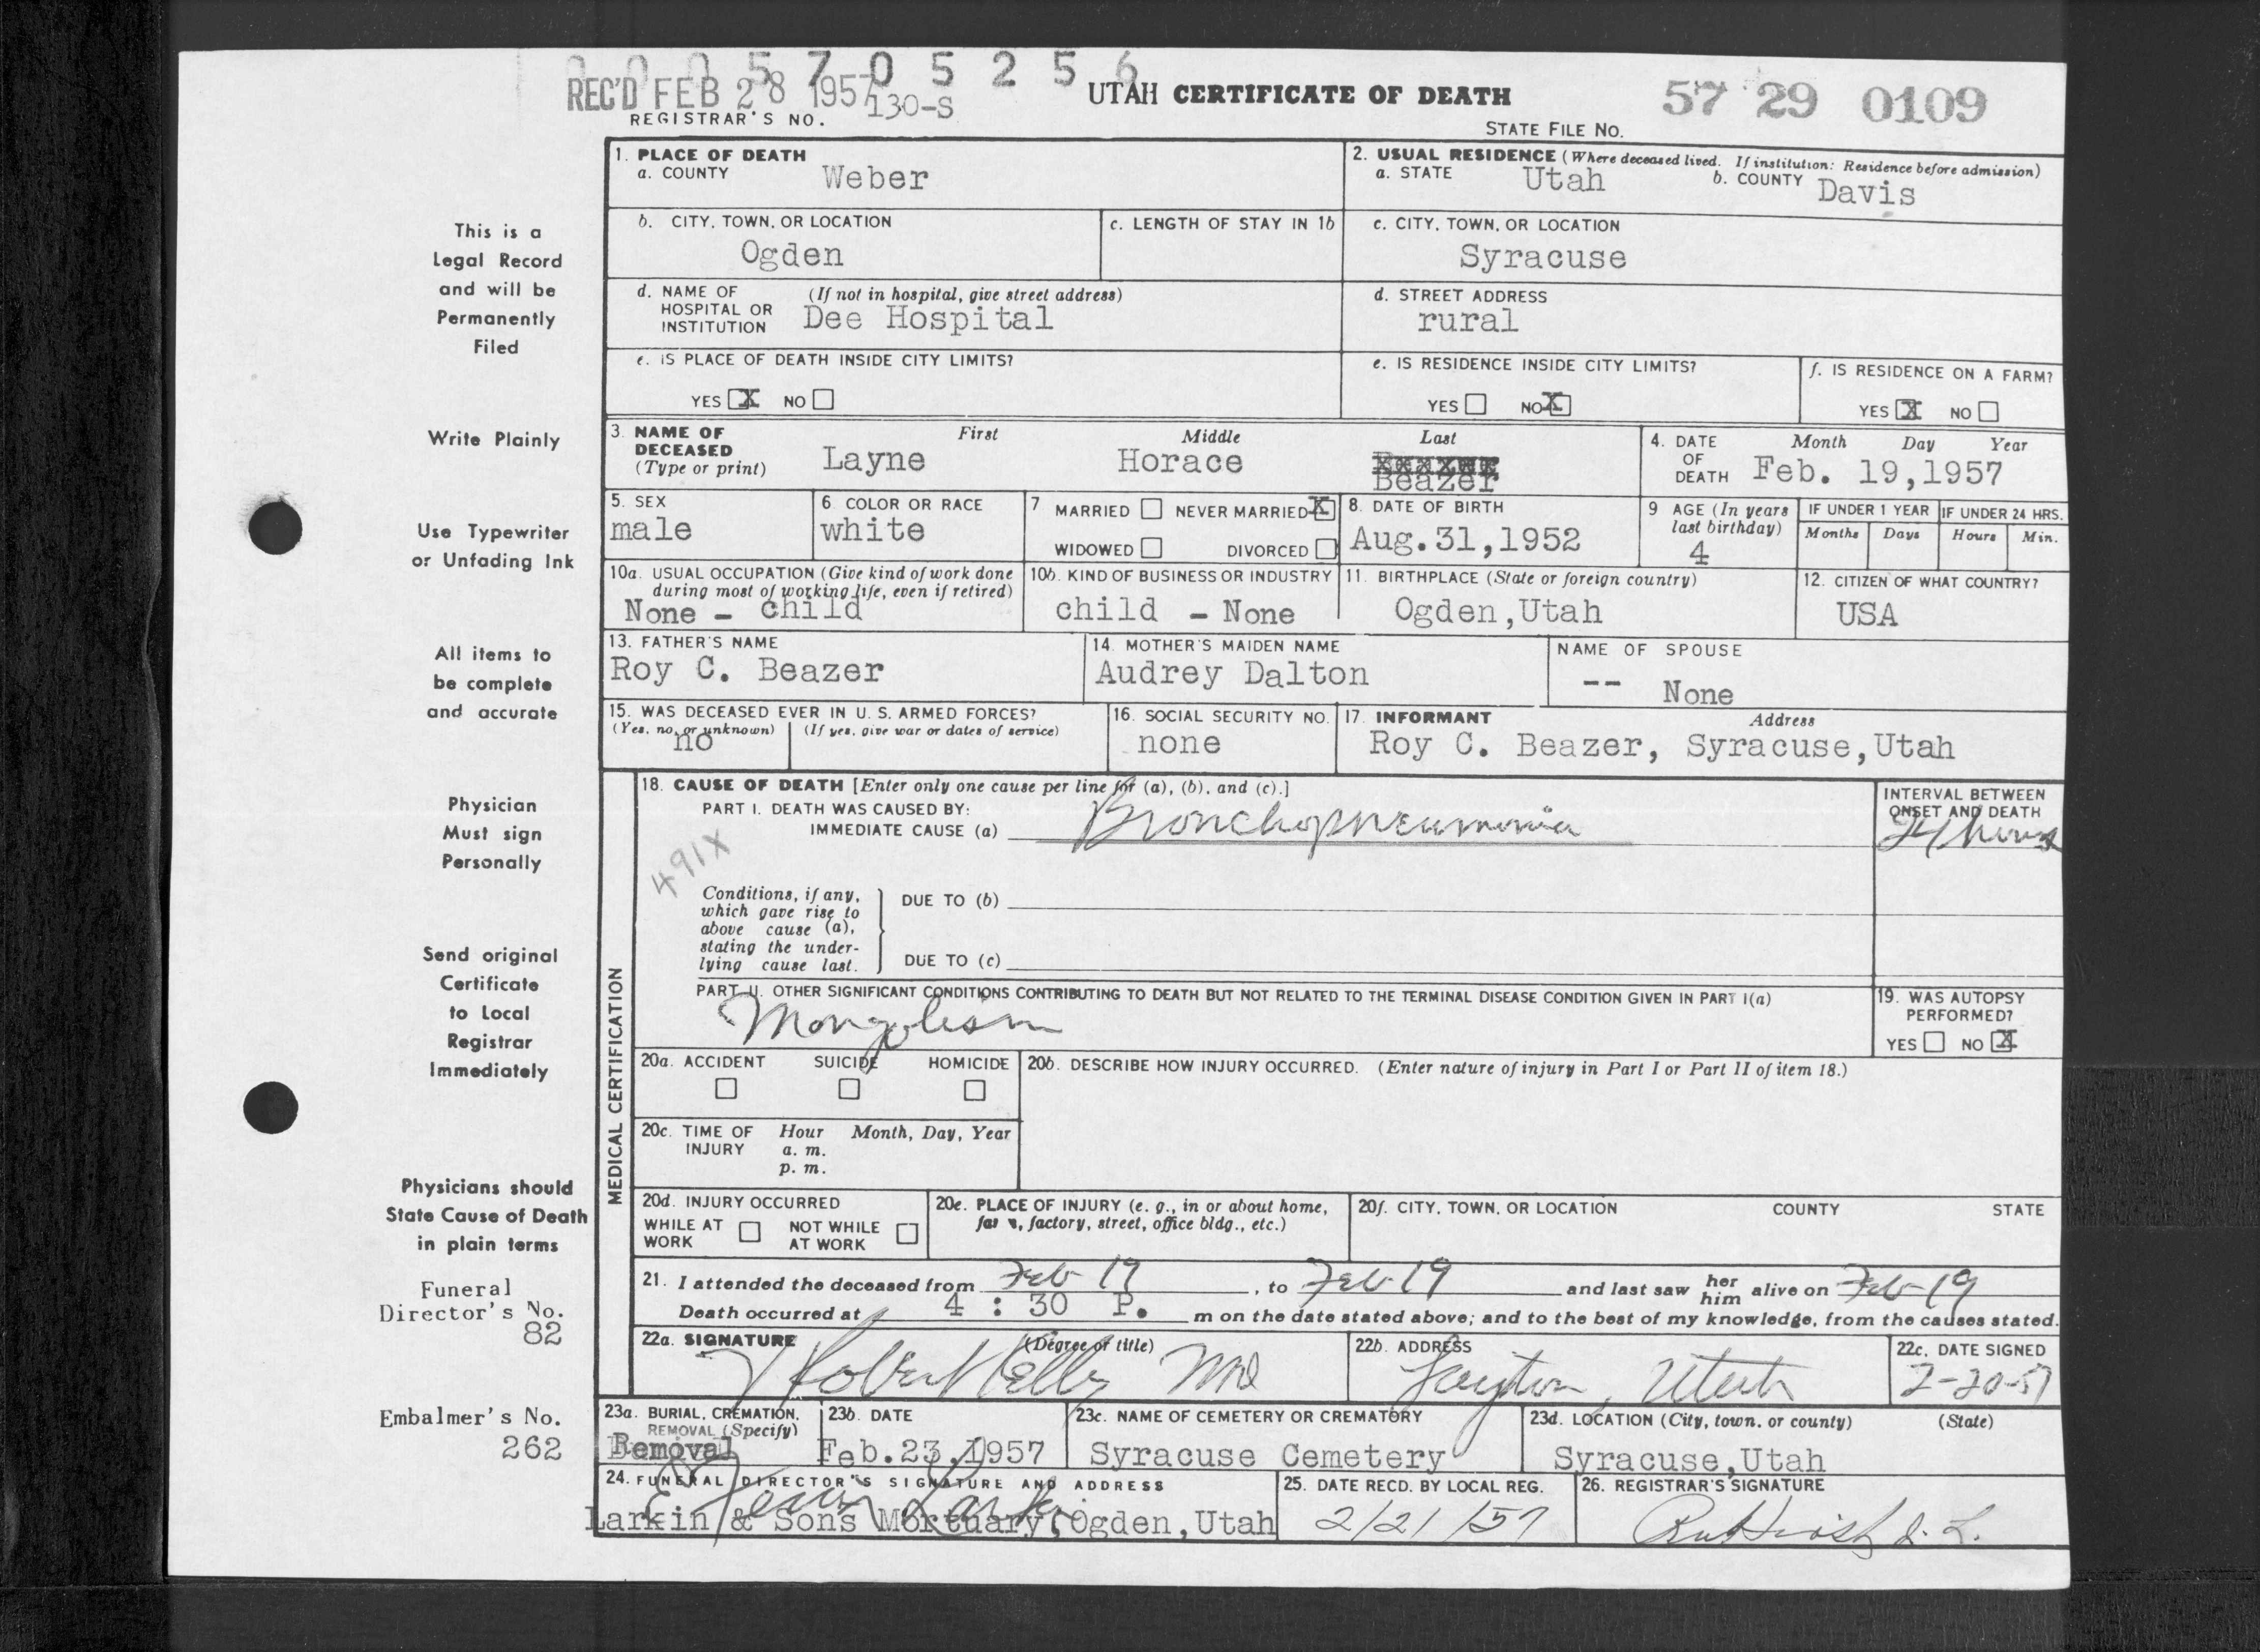 0 0 0 5 7 0 5 2 5 6
REC'D FEB 28 1957
130-S
REGISTRAR'S NO.
UTAH CERTIFICATE OF DEATH
57 29 0109
STATE FILE NO.
This is a
Legal Record
and will be
Permanently
Filed
Write Plainly
Use Typewriter
or Unfading Ink
All items to
be complete
and accurate
Physician
Must sign
Personally
Send original
Certificate
to Local
Registrar
Immediately
Physicians should
State Cause of Death
in plain terms
Funeral
Director's No.
82
Embalmer's No.
262
1. PLACE OF DEATH
a. COUNTY Weber
2. USUAL RESIDENCE (Where deceased lived. If institution: Residence before admission)
a. STATE Utah b. COUNTY Davis
b. CITY, TOWN, OR LOCATION
Ogden
c. LENGTH OF STAY IN 1b
c. CITY, TOWN, OR LOCATION
Syracuse
d. NAME OF (If not in hospital, give street address)
HOSPITAL OR
INSTITUTION Dee Hospital
d. STREET ADDRESS
rural
e. IS PLACE OF DEATH INSIDE CITY LIMITS?
YES X NO
e. IS RESIDENCE INSIDE CITY LIMITS?
YES NO X
f. IS RESIDENCE ON A FARM?
YES X NO
3. NAME OF DECEASED
(Type or print)
First Middle Last
Layne Horace Beazer
4. DATE OF DEATH Month Day Year
Feb. 19,1957
5. SEX
male
6 COLOR OR RACE
white
7 MARRIED NEVER MARRIED X
WIDOWED DIVORCED
8. DATE OF BIRTH
Aug.31,1952
9 AGE (In years
last birthday)
4
IF UNDER 1 YEAR
Months Days
IF UNDER 24 HRS.
Hours Min.
10a. USUAL OCCUPATION (Give kind of work done
during most of working life, even if retired)
None - child
10b. KIND OF BUSINESS OR INDUSTRY
child - None
11. BIRTHPLACE (State or foreign country)
Ogden,Utah
12. CITIZEN OF WHAT COUNTRY?
USA
13. FATHER'S NAME
Roy C. Beazer
14. MOTHER'S MAIDEN NAME
Audrey Dalton
NAME OF SPOUSE
-- None
15. WAS DECEASED EVER IN U. S. ARMED FORCES?
(Yes, no, or unknown) (If yes, give war or dates of service)
no
16. SOCIAL SECURITY NO.
none
17. INFORMANT Address
Roy C. Beazer, Syracuse,Utah
MEDICAL CERTIFICATION
18. CAUSE OF DEATH [Enter only one cause per line for (a), (b), and (c).]
PART I. DEATH WAS CAUSED BY:
IMMEDIATE CAUSE (a) Bronchopneumonia
INTERVAL BETWEEN
ONSET AND DEATH
24 hours
491X
Conditions, if any,
which gave rise to
above cause (a),
stating the under-
lying cause last.
DUE TO (b)
DUE TO (c)
PART II. OTHER SIGNIFICANT CONDITIONS CONTRIBUTING TO DEATH BUT NOT RELATED TO THE TERMINAL DISEASE CONDITION GIVEN IN PART I(a)
Mongolism
19. WAS AUTOPSY
PERFORMED?
YES NO X
20a. ACCIDENT SUICIDE HOMICIDE
20b. DESCRIBE HOW INJURY OCCURRED. (Enter nature of injury in Part I or Part II of item 18.)
20c. TIME OF Hour Month, Day, Year
INJURY a. m.
p. m.
20d. INJURY OCCURRED
WHILE AT WORK NOT WHILE AT WORK
20e. PLACE OF INJURY (e. g., in or about home,
farm, factory, street, office bldg., etc.)
20f. CITY, TOWN, OR LOCATION COUNTY STATE
21. I attended the deceased from Feb 19, to Feb 19 and last saw her him alive on Feb-19
Death occurred at 4 : 30 P. m on the date stated above; and to the best of my knowledge, from the causes stated.
22a. SIGNATURE (Degree of title)
Robert MD
22b. ADDRESS
Layton, Utah
22c. DATE SIGNED
2-20-57
23a. BURIAL, CREMATION,
REMOVAL (Specify)
Removal
23b. DATE
Feb.23,1957
23c. NAME OF CEMETERY OR CREMATORY
Syracuse Cemetery
23d. LOCATION (City, town, or county) (State)
Syracuse,Utah
24. FUNERAL DIRECTOR'S SIGNATURE AND ADDRESS
Larkin & Sons Mortuary, Ogden,Utah
25. DATE RECD. BY LOCAL REG.
2/21/57
26. REGISTRAR'S SIGNATURE